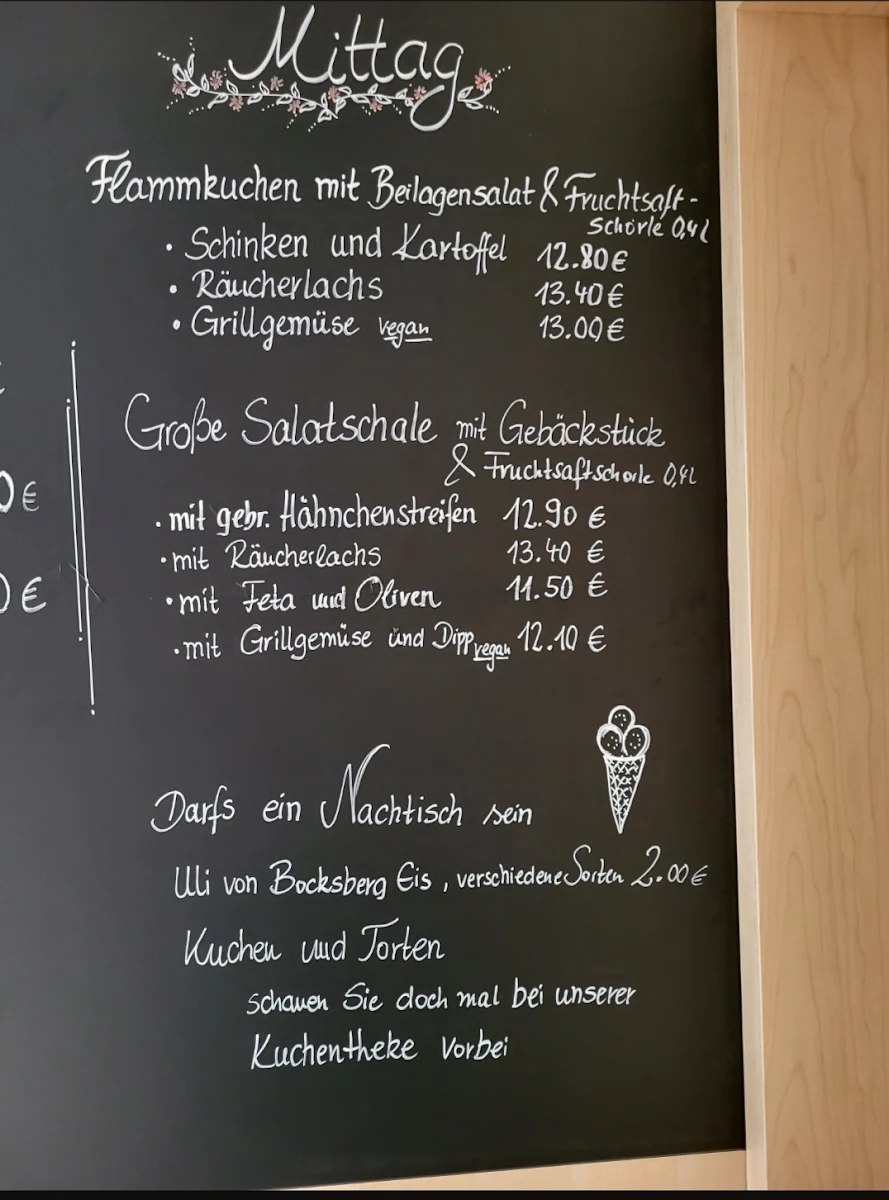 Mittag
Flammkuchen mit Beilagensalat & Fruchtsaft-
schorle 0,4l
• Schinken und Kartoffel 12.80€
• Räucherlachs 13.40€
• Grillgemüse vegan 13.00€
Große Salatschale mit Gebäckstück
& Fruchtsaftschorle 0,4l
• mit gebr. Hähnchenstreifen 12.90 €
• mit Räucherlachs 13.40 €
• mit Feta und Oliven 11.50 €
• mit Grillgemüse und Dipp vegan 12.10 €
0€
0€
Darfs ein Nachtisch sein
Uli von Bocksberg Eis, verschiedene Sorten 2.00€
Kuchen und Torten
schauen Sie doch mal bei unserer
Kuchentheke vorbei